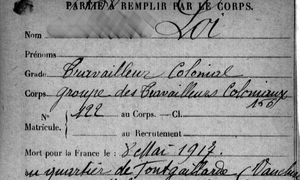 PARTIE À REMPLIR PAR LE CORPS.
Loi
Nom
Prénoms
Grade Travailleur Colonial
Corps groupe des Travailleurs Coloniaux
N° 122 au Corps. — Cl.
Matricule. au Recrutement
Mort pour la France le 8 Mai 1917
au quartier de Fontgaillarde (Vaucluse